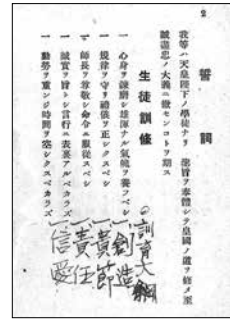 2
誓詞
我等ハ天皇陛下ノ學徒ナリ 聖旨ヲ奉體シテ皇國ノ道ヲ修メ至
誠盡忠ノ大義ニ徹センコトヲ期ス
生徒訓條
一 心身ヲ鍊磨シ雄渾ナル氣魄ヲ養フベシ
一 規律ヲ守リ禮儀ヲ正シクスベシ
一 師長ヲ尊敬シ命令ニ服從スベシ
一 誠實ヲ旨トシ言行ニ表裏アルベカラズ
一 勤勞ヲ重ンジ時間ヲ空シクスベカラズ
◎訓育大綱
一 創造
一 責節
一 責任
一 信愛